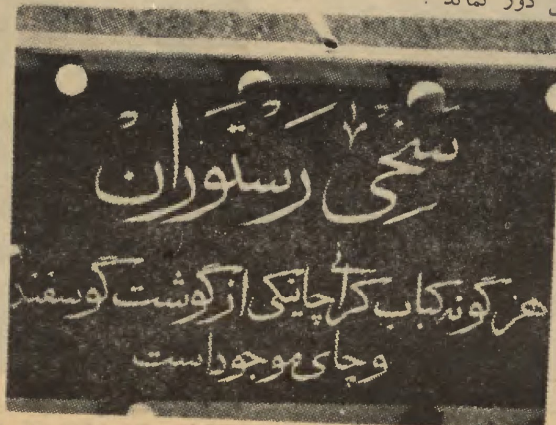 دور نماند .
سخی رستوران
هر گونه کباب کرائی چاینکی از گوشت گوسفند
و چای موجود است